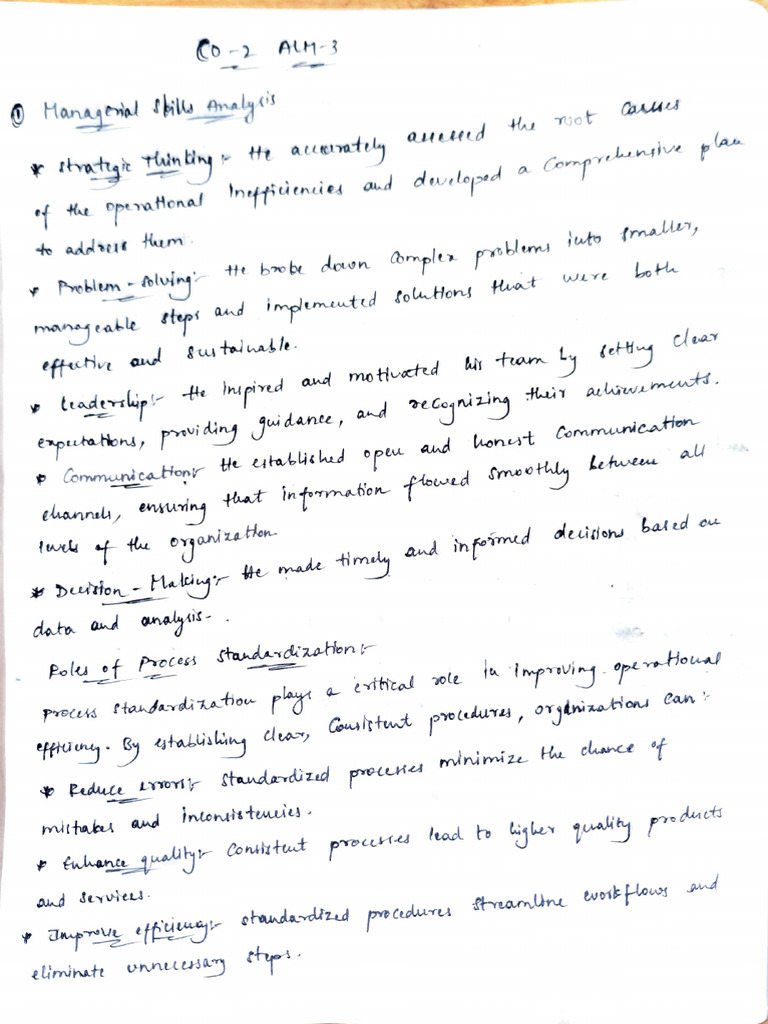 CO-2 ALM-3
① Managerial Skills Analysis
* Strategic Thinking:- He accurately assessed the root causes
of the operational Inefficiencies and developed a comprehensive plan
to address them.
* Problem-solving:- He broke down complex problems into smaller,
manageable steps and implemented solutions that were both
effective and sustainable.
* Leadership:- He inspired and motivated his team by setting clear
expectations, providing guidance, and recognizing their achievements.
* Communication:- He established open and honest communication
channels, ensuring that information flowed smoothly between all
levels of the organization
* Decision-Making:- He made timely and informed decisions based on
data and analysis-.
Roles of Process Standardization:-
Process standardization plays a critical role in improving operational
efficiency. By establishing clear, consistent procedures, organizations can:
* Reduce errors:- standardized processes minimize the chance of
mistakes and inconsistencies.
* Enhance quality:- Consistent processes lead to higher quality products
and services.
* Improve efficiency:- standardized procedures streamline workflows and
eliminate unnecessary steps.